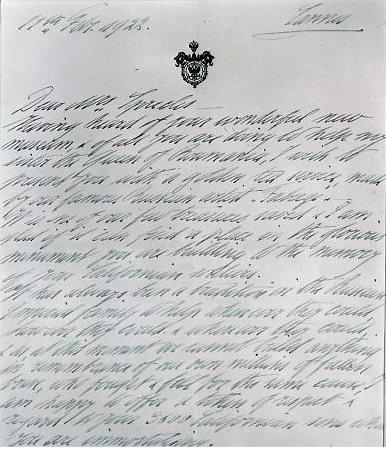 11th Feb. 1923. Cannes
Dear Mrs. Spreckels
Having heard of your wonderful new
museum, & of all you are doing to help my
sister the Queen of Roumania, I wish to
present you with a golden tea service, made
by our famous Russian artist Faberge.
It is one of our few treasures saved & I am
glad if it can find a place in the glorious
monument you are building to the memory
of your Californian soldiers.
It has always been a tradition in the Russian
family to help whenever they could,
however they could & whoever they could,
& as at this moment we cannot build anything
in remembrance of our own millions of fallen
who fought & fell for the same cause, I
am happy to offer a token of respect &
regards to your 3600 Californian sons whom
you are immortalising.